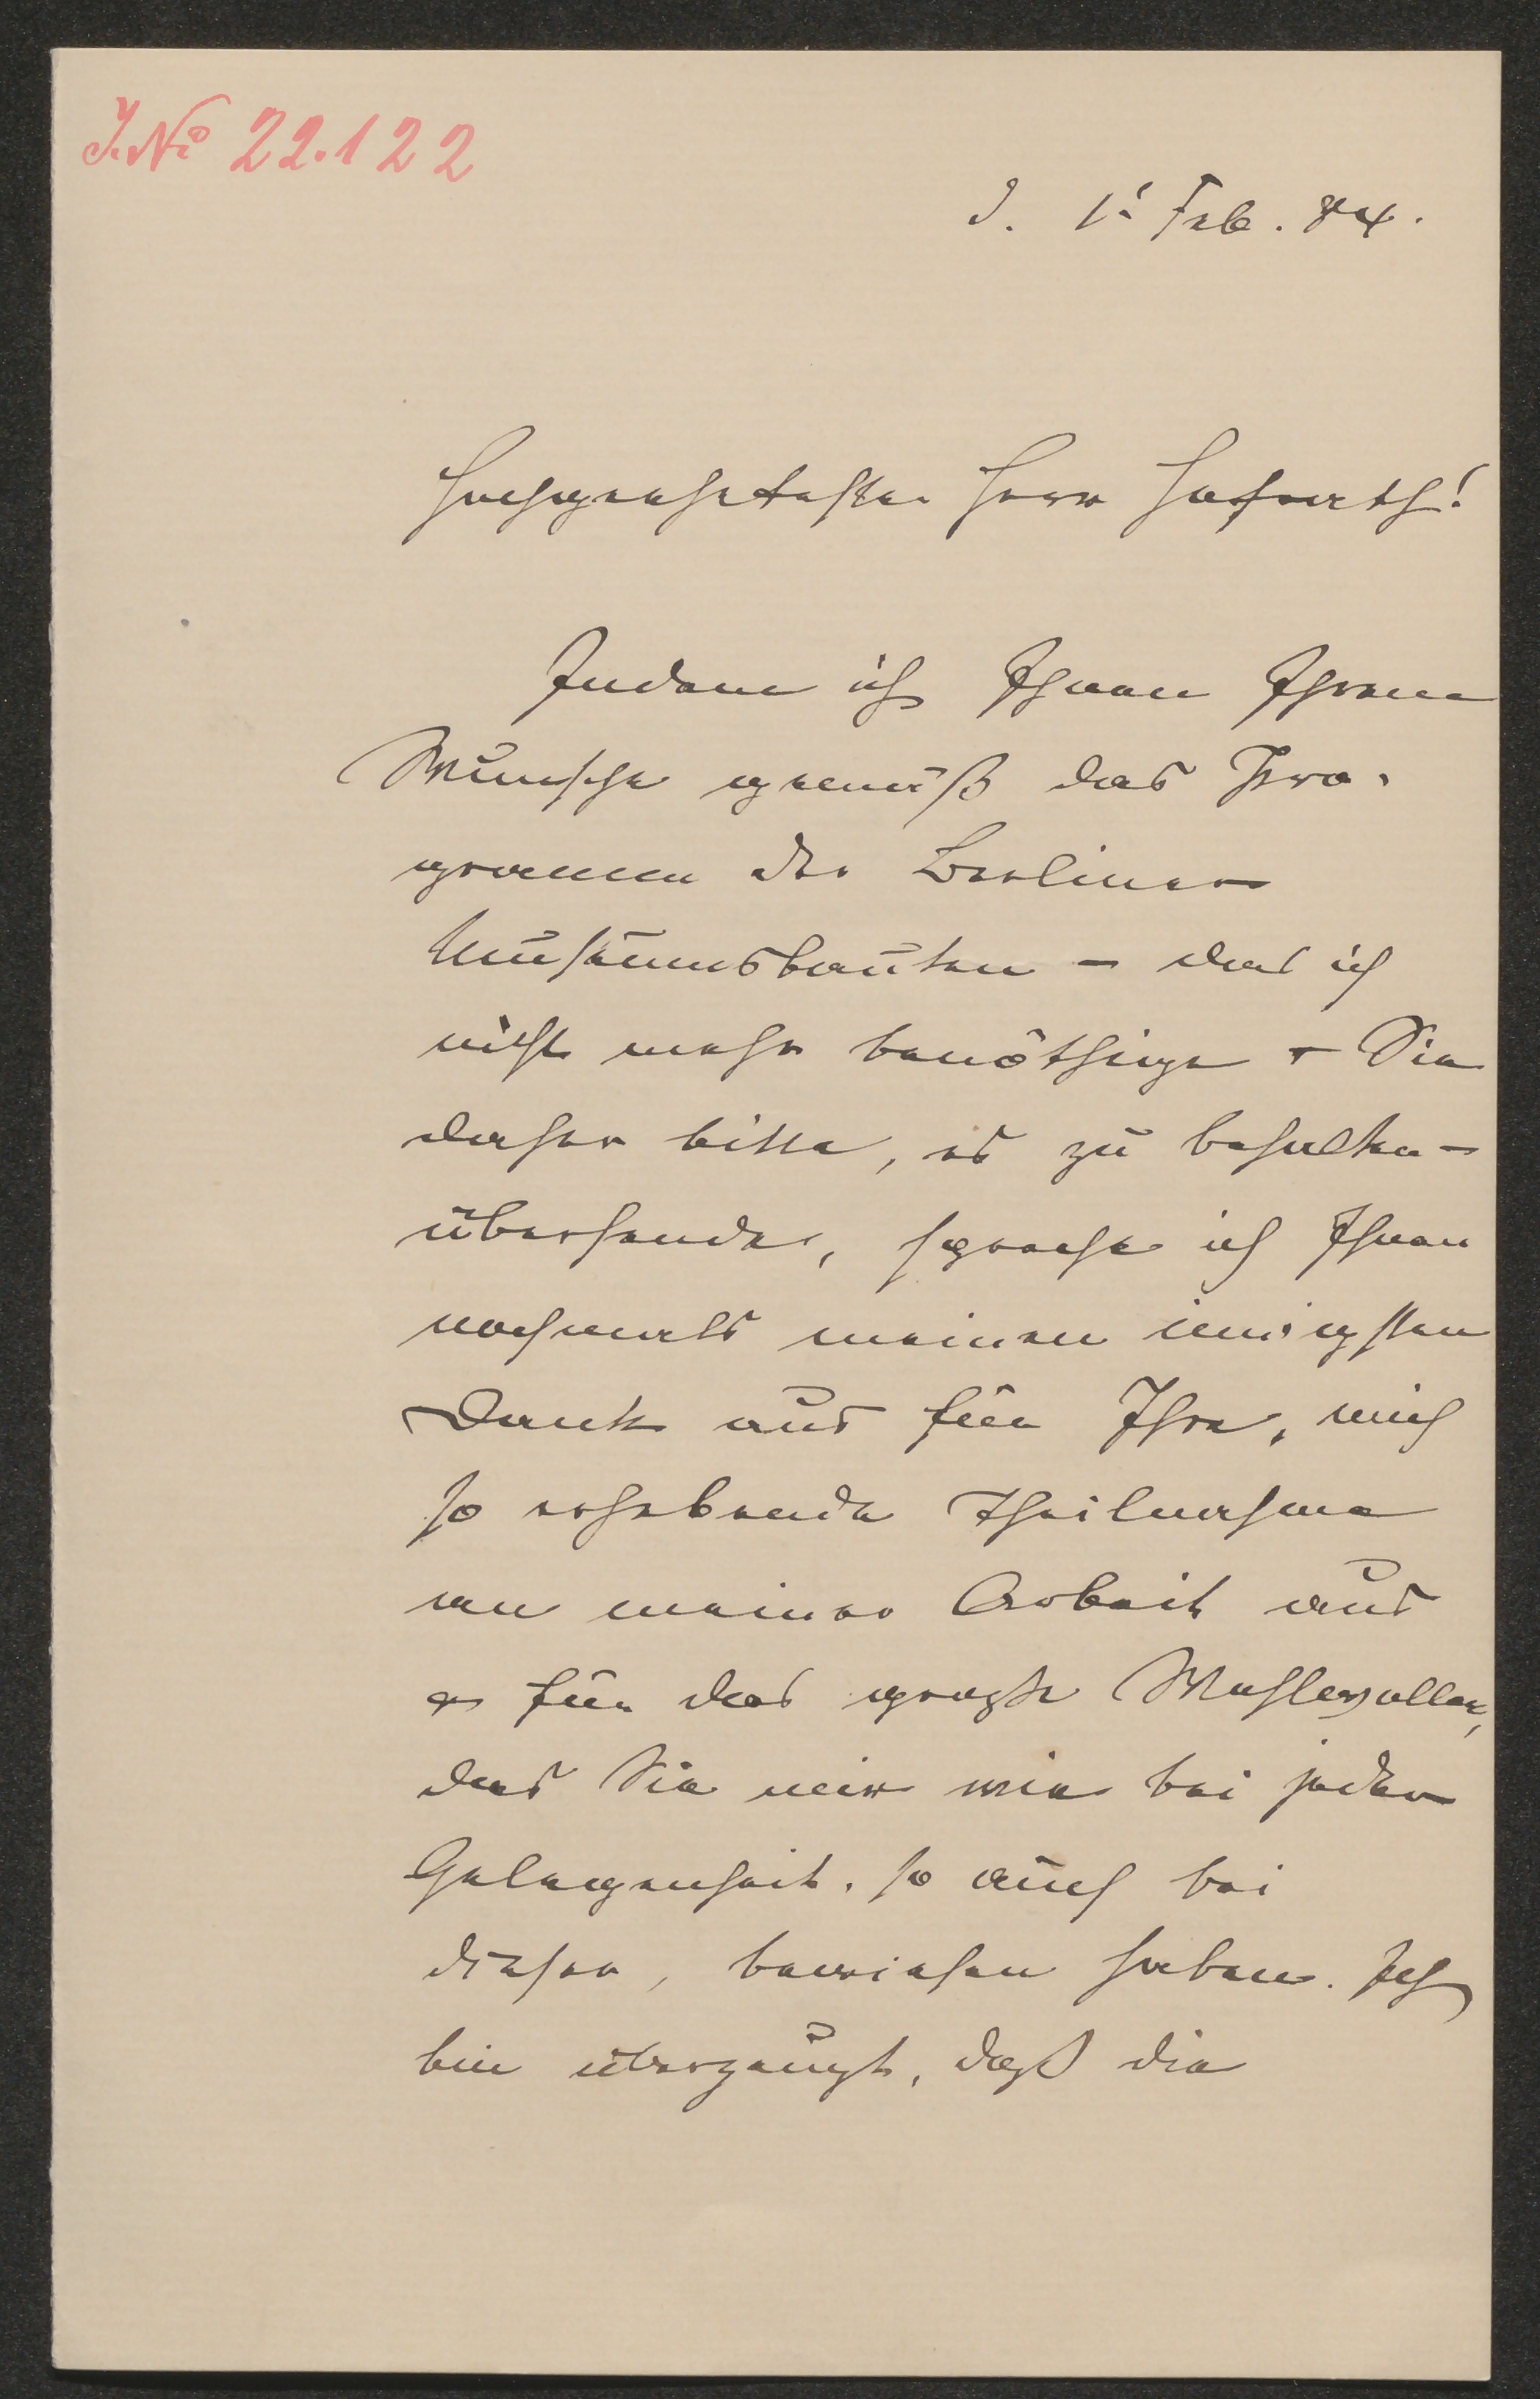 J.No 22.122
d. 1t Feb. 84.
Hochgeehrtester Herr Hofrath!
Indem ich Ihnen Ihrem
Wunsche gemäß das Pro-
gramm der Berliner
Museumsbauten – das ich
nicht mehr benöthige + Sie
daher bitte, es zu behalten –
übersende, spreche ich Ihnen
nochmals meinen innigsten
Dank aus für Ihre, mich
so erhebende Theilnahme
an meiner Arbeit und
für das große Wohlwollen,
das Sie mir wie bei jeder
Gelegenheit, so auch bei
dieser, bewiesen haben. Ich
bin überzeugt, daß die